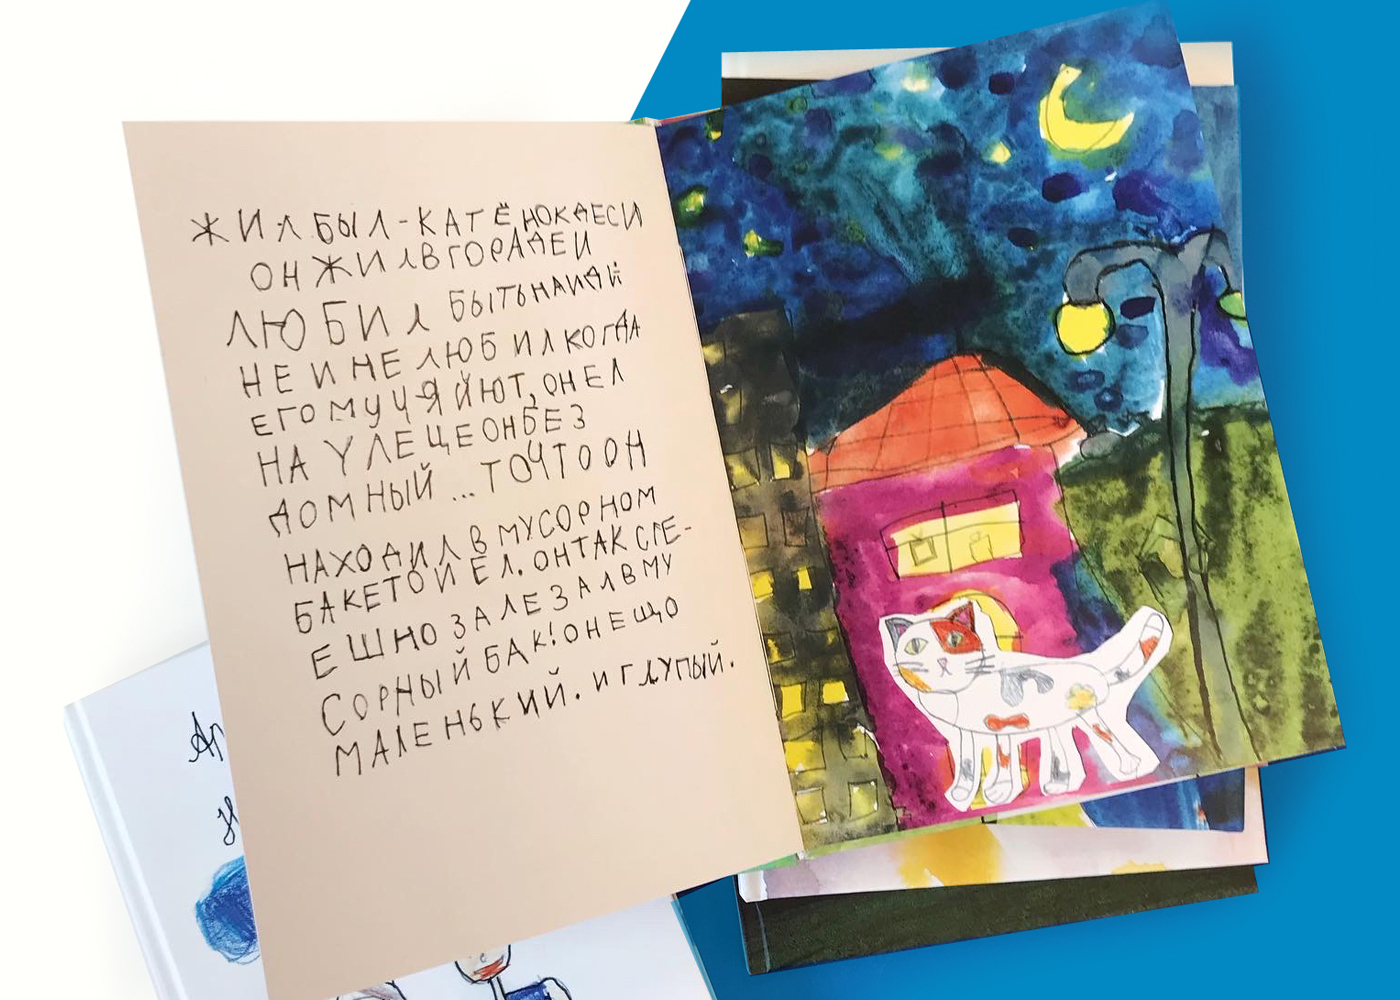 ЖИЛ БЫЛ - КАТЁНОК ДЕСИ
ОН ЖИЛ В ГОРАДЕ И
ЛЮБИЛ БЫТЬ НАИДЙ
НЕ И НЕ ЛЮБИЛ КОГДА
ЕГО МУЧЯЙЮТ, ОН ЕЛ
НА УЛЕЦЕ ОН БЕЗ
ДОМНЫЙ ... ТО ЧТО ОН
НАХОДИЛ В МУСОРНОМ
БАКЕ ТО И ЕЛ. ОН ТАК СПЕ-
ЕШНО ЗАЛЕЗАЛ В МУ
СОРНЫЙ БАК! ОН ЕЩО
МАЛЕНЬКИЙ. И ГЛУПЫЙ.